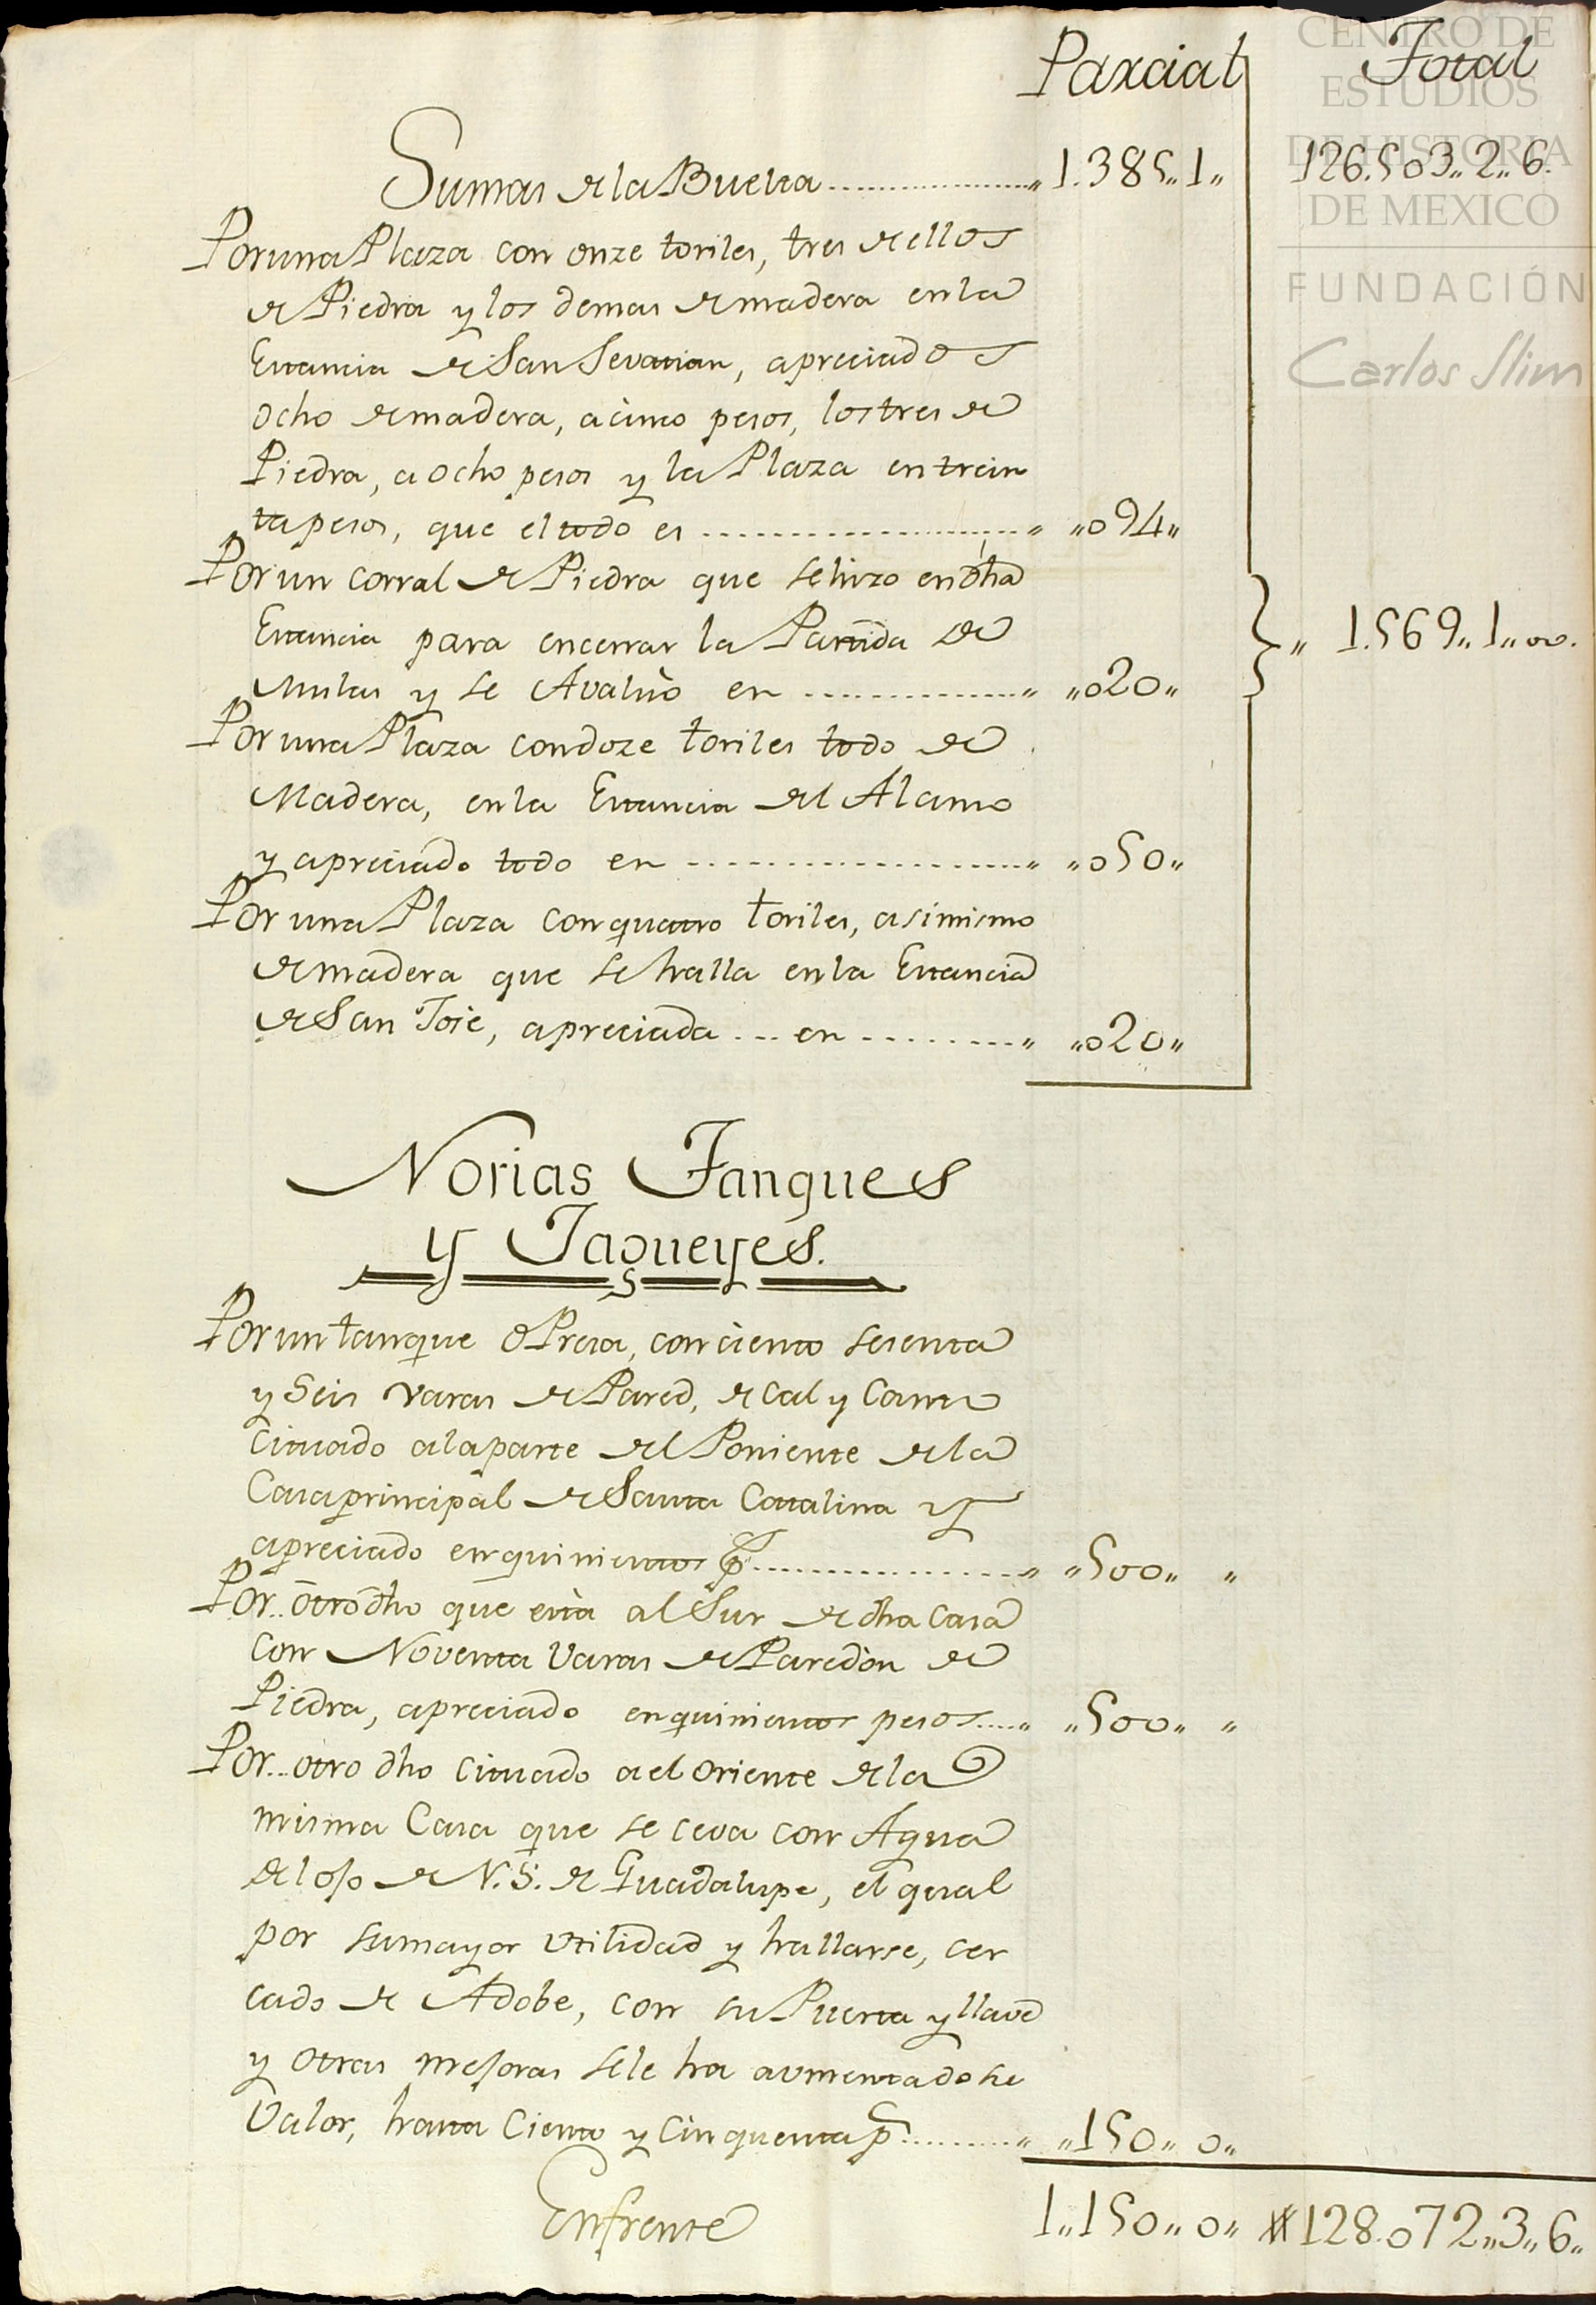 Parcial Total
Sumas de la Buelta .................... „ 1.385„ 1„ 126.503„ 2„ 6.
Por una Plaza con onze toriles, tres de ellos
de Piedra y los demas de madera en la
Estancia de San Sevastian, apreciados
ocho de madera, a cinco pesos, los tres de
Piedra, a ocho pesos y la Plaza en trein
ta pesos, que el todo es .................... „ „094„
Por un corral de Piedra que se hizo en dha
Estancia para encerrar la Partida de
Mulas y se Avaluò en ................ „ „020„ } „ 1.569„ 1„ 00.
Por una Plaza con doze toriles todo de
Madera, en la Estancia del Alamo
y apreciado todo en .................... „ „050„
Por una Plaza con quatro toriles, asimismo
de madera que se halla en la Estancia
de San Jose, apreciada ... en ......... „ „020„
Norias Tanques
y Jagueyes.
Por un tanque ô Presa, con ciento sesenta
y Seis varas de Pared, de Cal y Canto
cituado a la parte del Poniente de la
Casa principal de Santa Catalina y
apreciado en quinientos p.s .................. „ „500„ „
Por.. otro dho que està al Sur de dha Casa
con Noventa Varas de Paredòn de
Piedra, apreciado en quinientos pesos ..... „ „500„ „
Por... otro dho cituado a el oriente de la
misma Casa que se ceva con Agua
del ojo de N. S. de Guadalupe, el qual
por su mayor utilidad y hallarse, cer
cado de Adobe, con su Puerta y llave
y otras mejoras se le ha aumentado se
Valor, hasta Ciento y Cinquenta p.s .......... „ „150„ 0„
Enfrente 1„150„ 0„ 128.072„ 3„ 6„
CENTRO DE
ESTUDIOS
DE HISTORIA
DE MEXICO
FUNDACIÓN
Carlos Slim